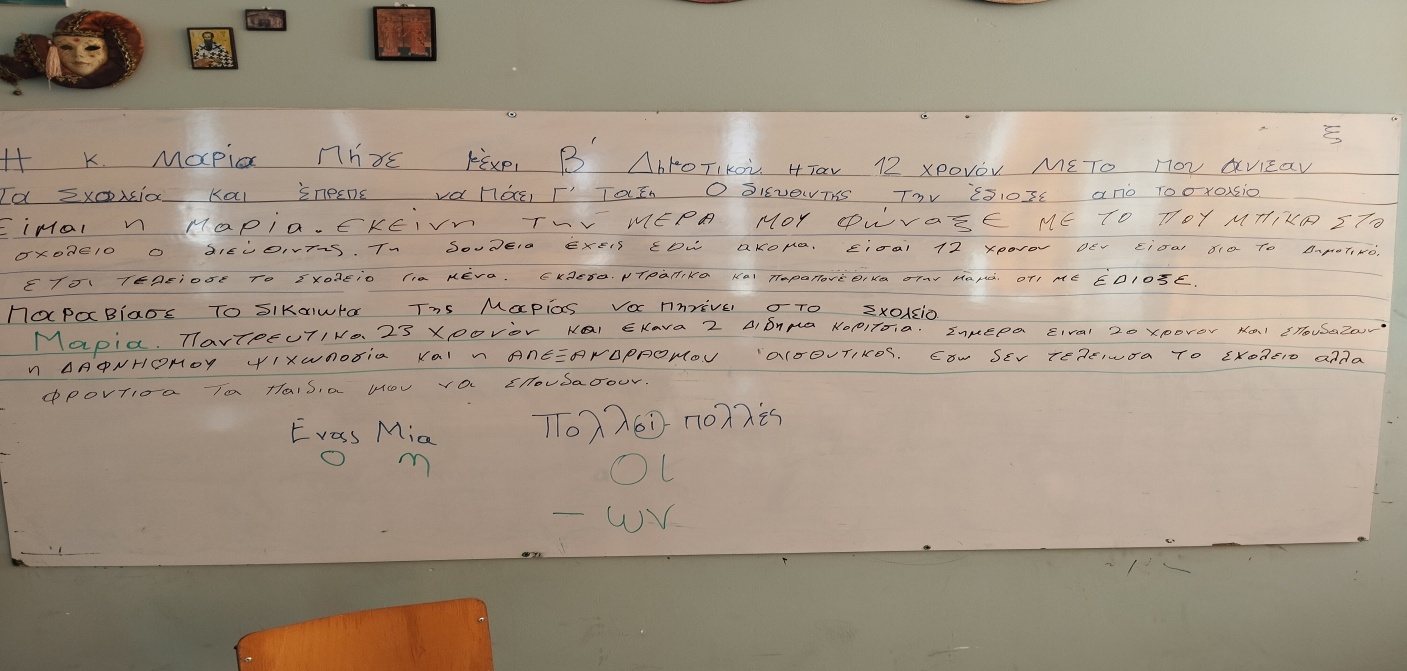 ξ
Η κ. Μαρία Πήγε μέχρι Β' Δημοτικού. Ήταν 12 χρονόν ΜΕ ΤΟ που άνιξαν
Τα Σχολεία και έπρεπε να πάει Γ' Ταξη Ο διευθηντης την έδιοξε από το σχολείο
Είμαι η Μαρία. ΕΚΕίνη την ΜΕΡΑ ΜΟΥ ΦώναξΕ ΜΕ ΤΟ ΠΟΥ ΜΠΙΚΑ ΣΤΟ
σχολειο ο διεύθιντης. Τη δουλεια έχεις εδώ ακομα. είσαι 12 χρονον δεν είσαι για το Δημοτικό.
ΕΤσι τελείοσε το σχολείο για μένα. εκλεσα. ντράπικα και παραπονέθικα στην μαμά. οτι με ΈΔΙΟξΕ.
Παραβίασε το δικαιωμα της Μαρίας να πηγένει στο σχολείο
Μαρία. Παντρευτικα 23 χρονόν και εκανα 2 Δίδημα κοριτσια. Σημερα ειναι 20 χρονον και Σπουδαζουν
η ΔΑΦΝΗ ΘΜΟΥ ΨΙΧωλοσία και η ΑΛΕΞΑΝΔΡΑ ΘΜΟΥ αισθυτικος. Εσω δεν τελειωσα το Σχολειο αλλα
φροντισα τα παιδια μου να Σπουδασουν.
Ένας Μία Πολλοί - πολλές
Ο η ΟΙ
- ων